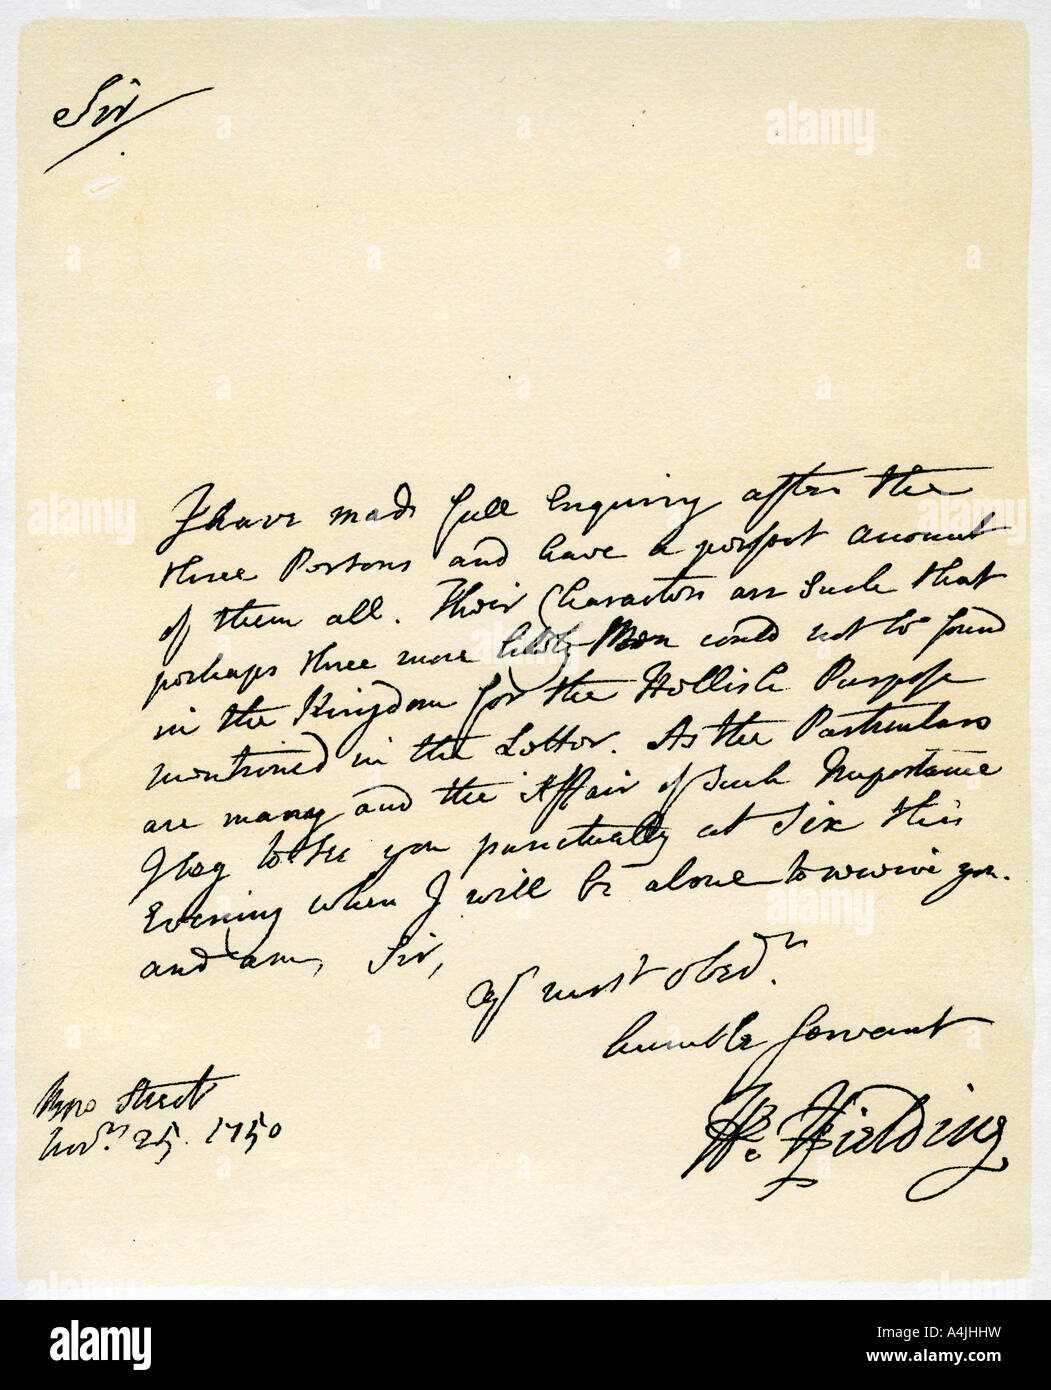 Sir
I have made full Enquiry after the
three Persons and have a perfect account
of them all. Their Characters are such that
perhaps three more likely Men could not be found
in the Kingdom for the Hellish Purpose
mentioned in the Letter. As the Particulars
are many and the Affair of such Importance
I beg to see you punctually at six this
Evening when I will be alone to receive you.
and am, Sir,
yr most obedt.
humble Servant
He. Fielding
Street
Novr. 25. 1750
alamy
Image ID: A4JHHW
www.alamy.com